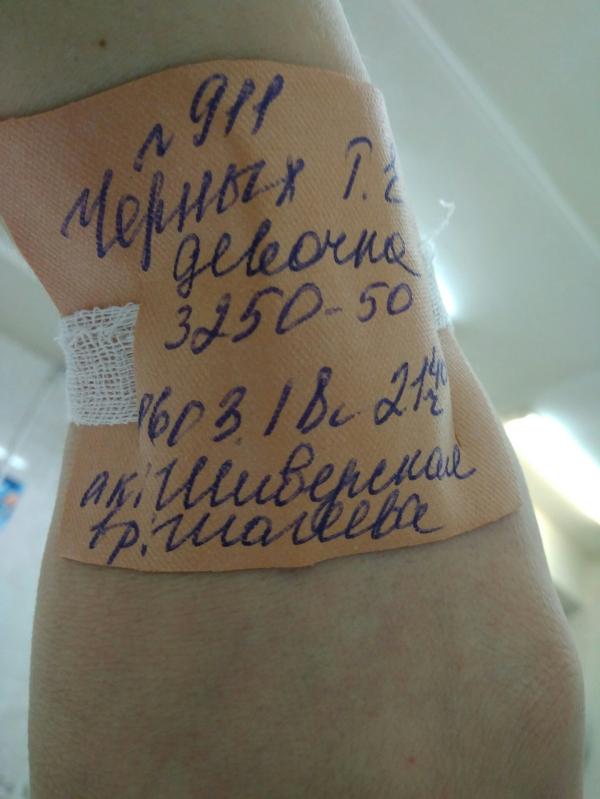 № 911
Черных Т.
девочка
3250-50
1603.18г 21⁴⁰
ак. Шиверская
вр. Шагеева